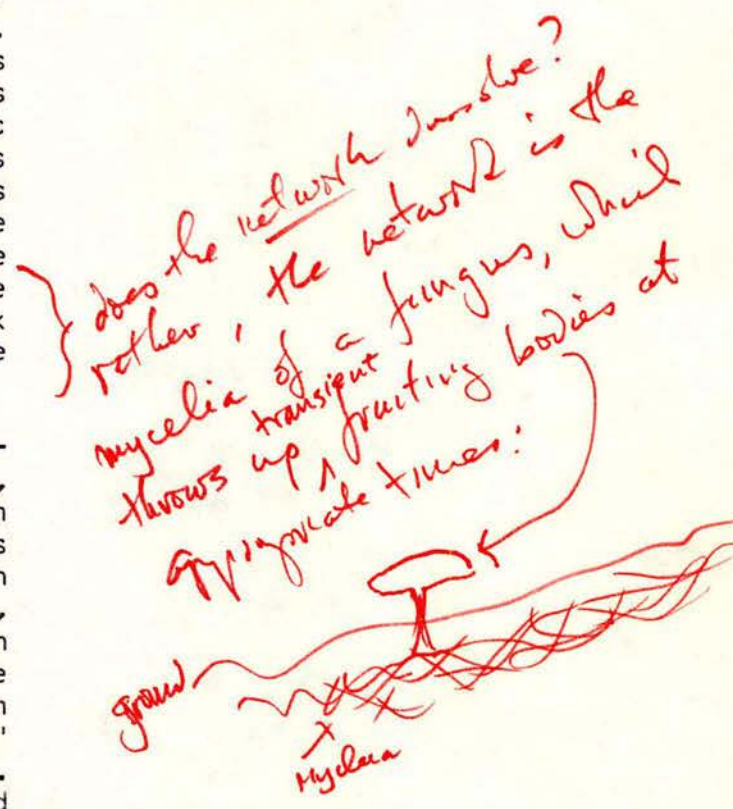 does the network dissolve?
rather, the network is the
mycelia of a fungus, which
throws up transient fruiting bodies at
appropriate times:
ground
Mycelia